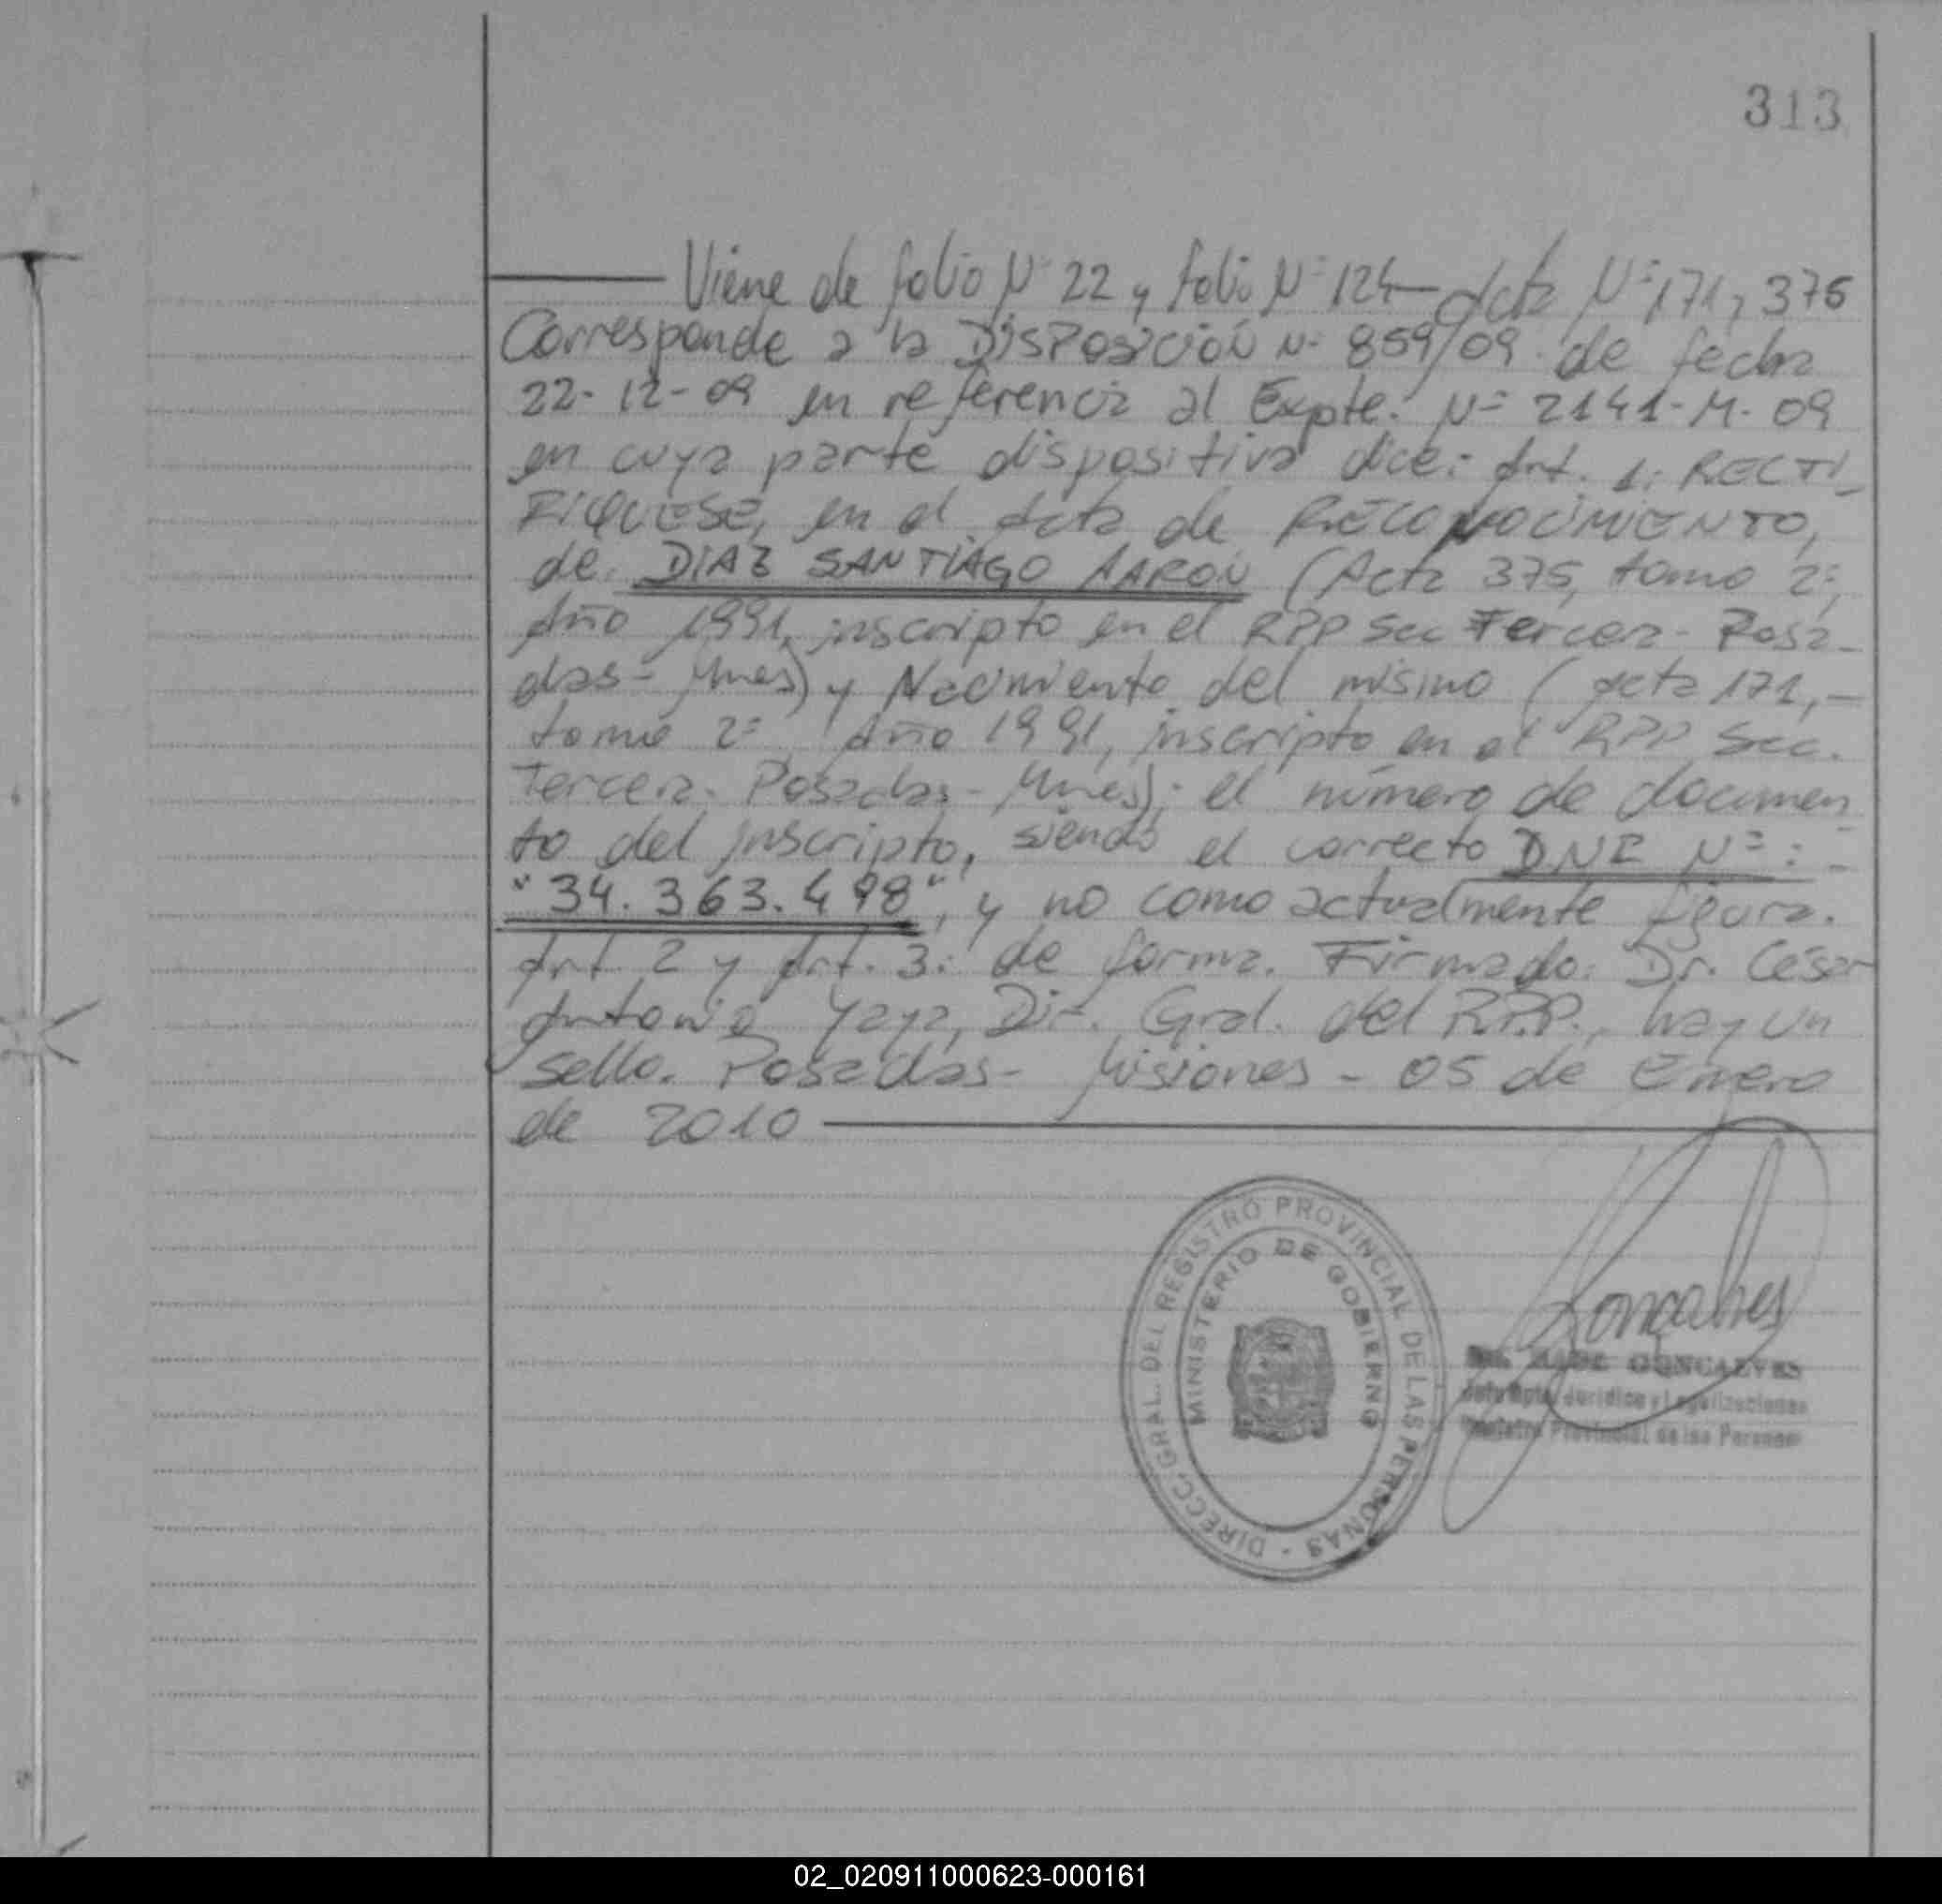 313
Viene de folio Nº 22 y folio Nº 124 Acta Nº 171, 375
Corresponde a la DISPOSICIÓN Nº 859/09 de fecha
22-12-09 en referencia al Expte. Nº 2141-M-09
en cuya parte dispositiva dice: Art. 1: RECTI_
FIQUESE, en el Acta de RECONOCIMIENTO,
de DIAZ SANTIAGO AARON (Acta 375, tomo 2º,
Año 1991, inscripto en el RPP Sec Tercera- Posa_
das- Mnes) y Nacimiento del mismo (acta 171,-
tomo 2º, Año 1991, inscripto en el RPP Sec.
Tercera. Posadas- Mnes); el número de documen_
to del inscripto, siendo el correcto DNI Nº: -
"34.363.498", y no como actualmente figura.
Art. 2 y Art. 3: de forma. Firmado: Dr. César
Antonio Yaya, Dir. Gral. del RPP., hay un
sello. Posadas- Misiones - 05 de Enero
de 2010
DIRECC. GRAL. DEL REGISTRO PROVINCIAL DE LAS PERSONAS -
MINISTERIO DE GOBIERNO
Goncalves
GONCALVES
Jefe Dpto. Jurídico y Legalizaciones
Registro Provincial de las Personas
02_020911000623-000161